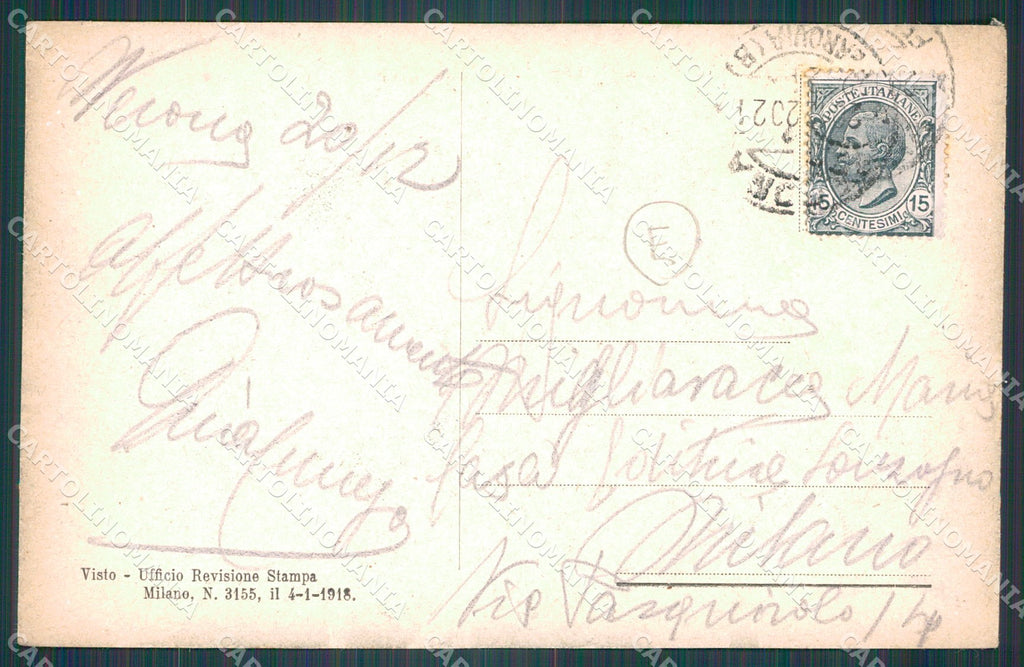 20/12
affettuosamente
Visto - Ufficio Revisione Stampa
Milano, N. 3155, il 4-1-1918.
POSTE ITALIANE
15 15
CENTESIMI
GENOVA (B)
Signorina
Migliavacca Maria
Casa Editrice Sonzogno
Milano
Via Pasquirolo 14
CARTOLINOMANIA